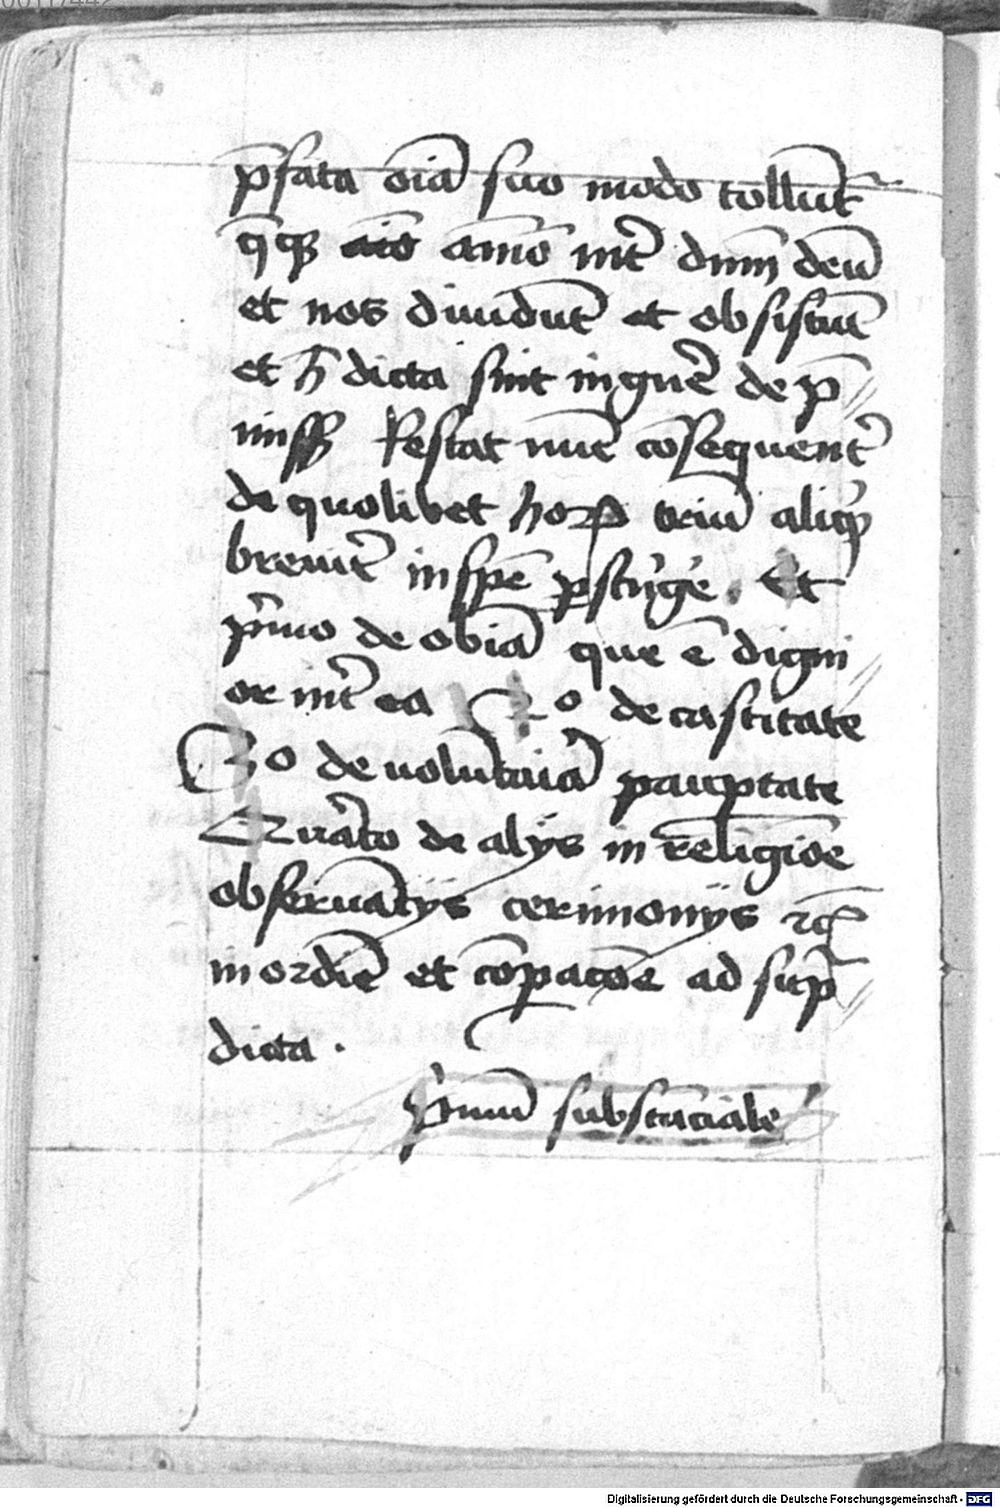 p̄fata oīa suo modo tollūt
q̄ꝙ āmō int͛ dn̄m deū
et nos diuidūt et obsistūt
et h̄ dicta sint in gn̄e de p̄
miss Restat nūc cōsequent͛
de quolibet hoꝝ triū aliqͥd
breuit͛ in spē ꝑstrīgē. Et
pͥmo de obīa que ē digni
or int͛ ea 2º de castitate
3o de volūtaria paupertate
Quarto de alijs in religiōe
obseruātijs cerimonijs ⁊c̄
in ordīe et cōpacōe ad sup̄
dicta .
pͥmū substāciale
Digitalisierung gefördert durch die Deutsche Forschungsgemeinschaft - DFG